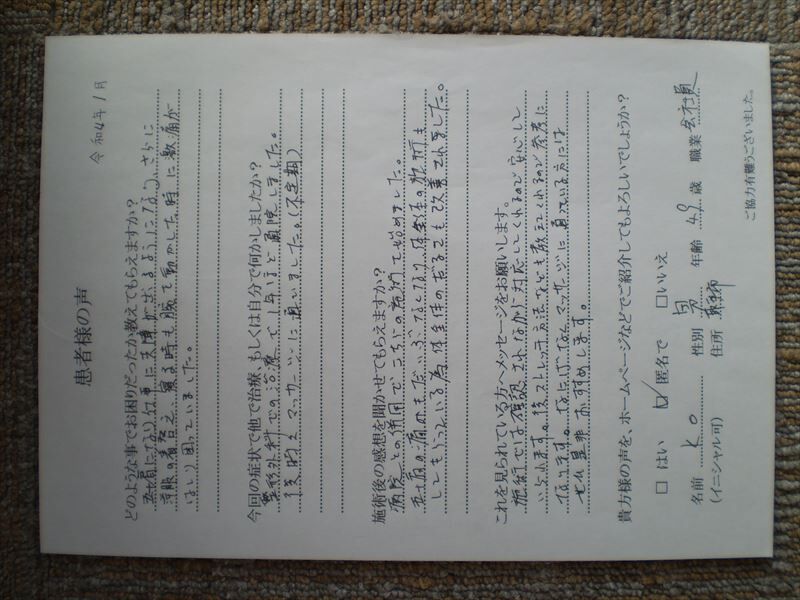 令和4年1月
患者様の声
どのような事でお困りだったか教えてもらえますか?
五十肩になり仕事に支障が出るようになり、さらに
洋服の着替え、寝る時も腕を動かした時に激痛が
はしり困っていました。
今回の症状で他で治療、もしくは自分で何かしましたか?
整形外科での治療で1年ほど通院しました。
後的々マッサージに通いました。(不定期)
施術後の感想を聞かせてもらえますか?
病院との併用でこちらの施術で始めました。
五十肩の痛みもだいぶなくなり、体全体の施術を
してもらっている為体全体のだるさも改善されました。
これを見られている方へメッセージをお願いします。
施術では確認されながら対応してくれるので安心して
いられます。後ストレッチ方法なども教えてくれるので参考に
なります。なればなんマッサージに通っている方には
ぜひ是非おすすめします。
貴方様の声を、ホームページなどでご紹介してもよろしいでしょうか?
□ はい ☑ 匿名で □いいえ
名前 K.O 性別 男 年齢 49 歳 職業 会社員
(イニシャル可) 住所
ご協力有難うございました。